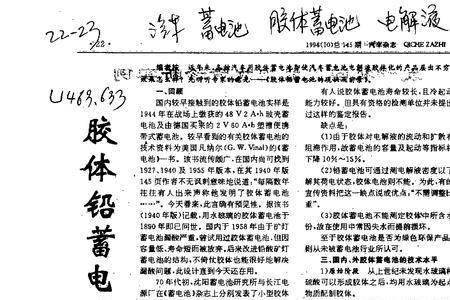 22-23
22.
汽车 蓄电池 胶体蓄电池 电解液
1994(10)总145期·汽车杂志 QICHE ZAZHI
U469.633
胶体铅蓄电
一、回顾
国内较早接触到的胶体铅蓄电池实样是
1944年在战场上缴获的48V2A·h玻壳蓄
电池及由德国买来的2V60A·h塑槽便携
带式蓄电池。较早看到的有关胶体蓄电池的
技术资料为美国凡纳尔(G.W.Vinal)的《蓄
电池》一书。该书流传颇广,在国内尚可找到
1927、1940及1955年版本,在其1940年版
145页作者不无讽刺意味地说道,“每隔数年
往往有人出来声称他发明了胶体蓄电池
……”。今天看来,此言确有预见性。据该书
(1940年版)记载,用水玻璃的胶体蓄电池于
1890年即已问世。国内于1958年由于矿灯
蓄电池漏酸严重,曾试用过胶体蓄电池,但因
容量低、寿命短而被放弃。后来改进铅酸矿灯
蓄电池的结构,不倚仗胶体也能很好地解决
漏酸问题,此设计直到今天还在用。
70年代初,沈阳蓄电池研究所与长江电
源厂在《蓄电池》杂志上分别发表了小型胶体
有人说胶体蓄电池寿命较长,且冷起动
能力较好。但具有资格的检测单位并未提出
过这样的鉴定报告。
缺点是:
(1)由于胶体对电解液的流动和扩散有
阻滞作用,故蓄电池的容量及起动等指标将
下降10%~15%。
(2)铅蓄电池可通过测电解液密度以了
解其荷电状态,胶体电池则不能。为此,有的
宣传资料把这一缺点说成优点,“不需调整比
重”。
(3)胶体蓄电池不能测定胶体中所含水
份,故在使用中常因失水而提前损坏。
至于胶体蓄电池是否为绿色环保产品,
则从未被蓄电池行业所认可。
三、国内、外胶体蓄电池的技术水平
1)原始阶段 从上世纪末发现水玻璃和
硫酸可以形成胶体之后,均用水玻璃为起点
物质配制胶体。